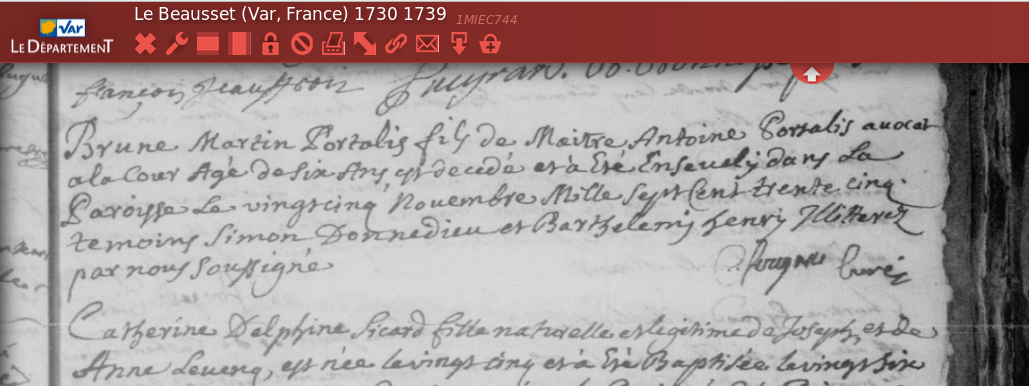 Le Beausset (Var, France) 1730 1739 1MIEC744
Var
LE DÉPARTEMENT
françois Jeauffroix
Brune Martin Portalis fils de Maitre Antoine Portalis avocat
a la Cour Agé de six Ans est decedé et à Eté Ensevely dans La
Paroisse Le vingtcinq Novembre Mille sept Cent trente cinq
temoins Simon Donnedieu et Barthelemj henry Illitterez
par nous soussigné
curé
Catherine Delphine Sicard fille naturelle et legitime de Joseph et de
Anne est née le vingt cinq et à Eté Baptisée le vingt six